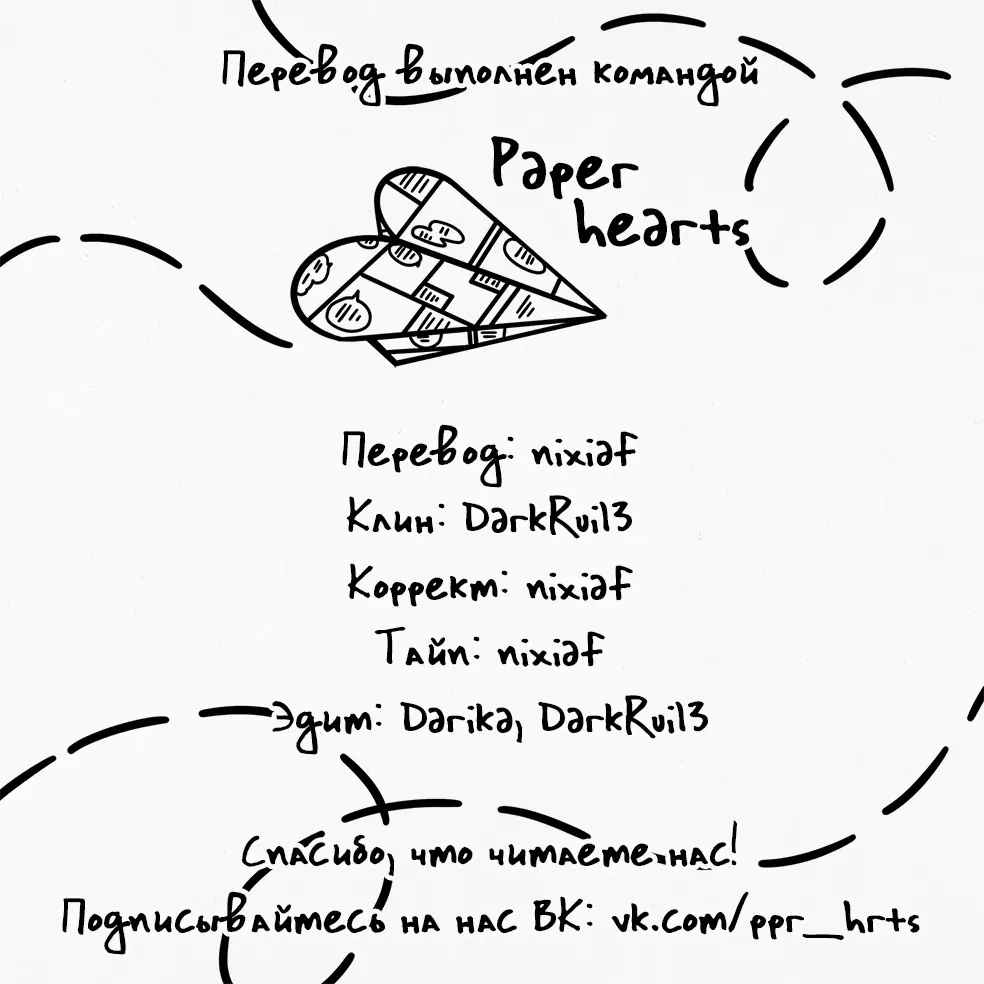 Перевод выполнен командой
Paper
hearts
Перевод: nixiaf
Клин: DarkRui13
Коррект: nixiaf
Тайп: nixiaf
Эдит: Darika, DarkRui13
Спасибо, что читаете нас!
Подписывайтесь на нас ВК: vk.com/ppr_hrts